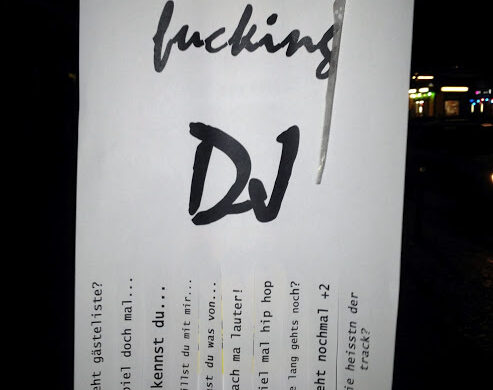 fucking
DJ
gästeliste?
doch mal...
kennst du...
du mit mir...
du was von...
ma lauter!
mal hip hop
lang gehts noch?
nochmal +2
heisstn der
track?